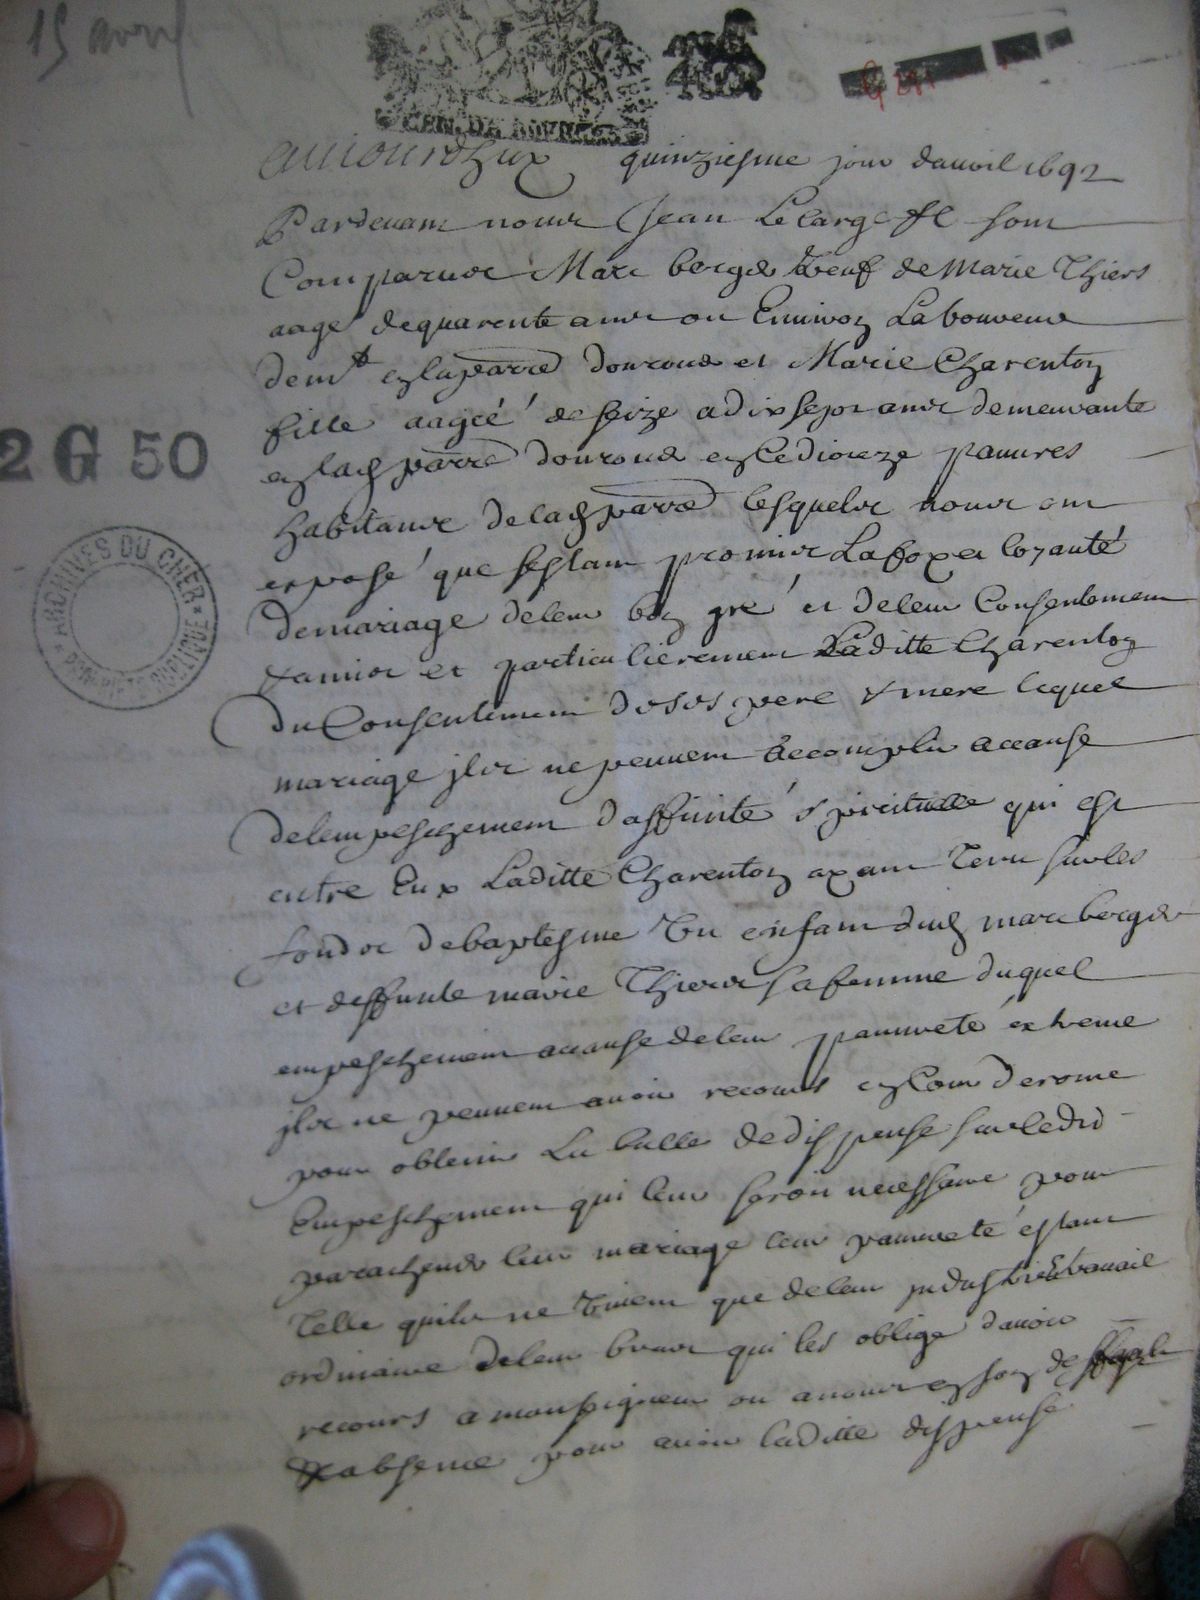 15 avril
GEN. DE BOURGES
aujourdhuy quinziesme jour dauril 1692
Pardeuant nous Jean Lelarge sont
Comparus Marc berger veuf de Marie Thiers
aagé de quarente ans ou Enuiron Laboureur
demt en la parre douroux et Marie Charenton
fille aagéé de seize a dix sept ans demeurante
en lad parre douroux en ce dioceze pauures
habitans de lad parre lesquels nous ont
exposé que sestant promis La foy et loyauté
de mariage de leur bon gré et de leur Consentement
et particulierement Laditte Charenton
du Consentement de ses pere & mere lequel
mariage jls ne peuuent accomplir a cause
de lempeschement daffinité spirituelle qui est
entre Eux Laditte Charenton ayant Tenu sur les
fonds de baptesme Vn enfant dud marc berger
et deffunte marie Thiers sa femme duquel
empeschement a cause de leur pauureté extreme
jls ne peuuent auoir recours en Cour de rome
pour obtenir La bulle de dispense sur led
Empeschement qui leur seroit necessaire pour
paracheuer leur mariage leur pauureté estant
Telle quils ne Viuent que de leur jndustrie & trauail
ordinaire de leurs bras qui les oblige dauoir
recours a monseigneur ou a nous en son
absence pour auoir laditte dispense
2 G 50
ARCHIVES DU CHER